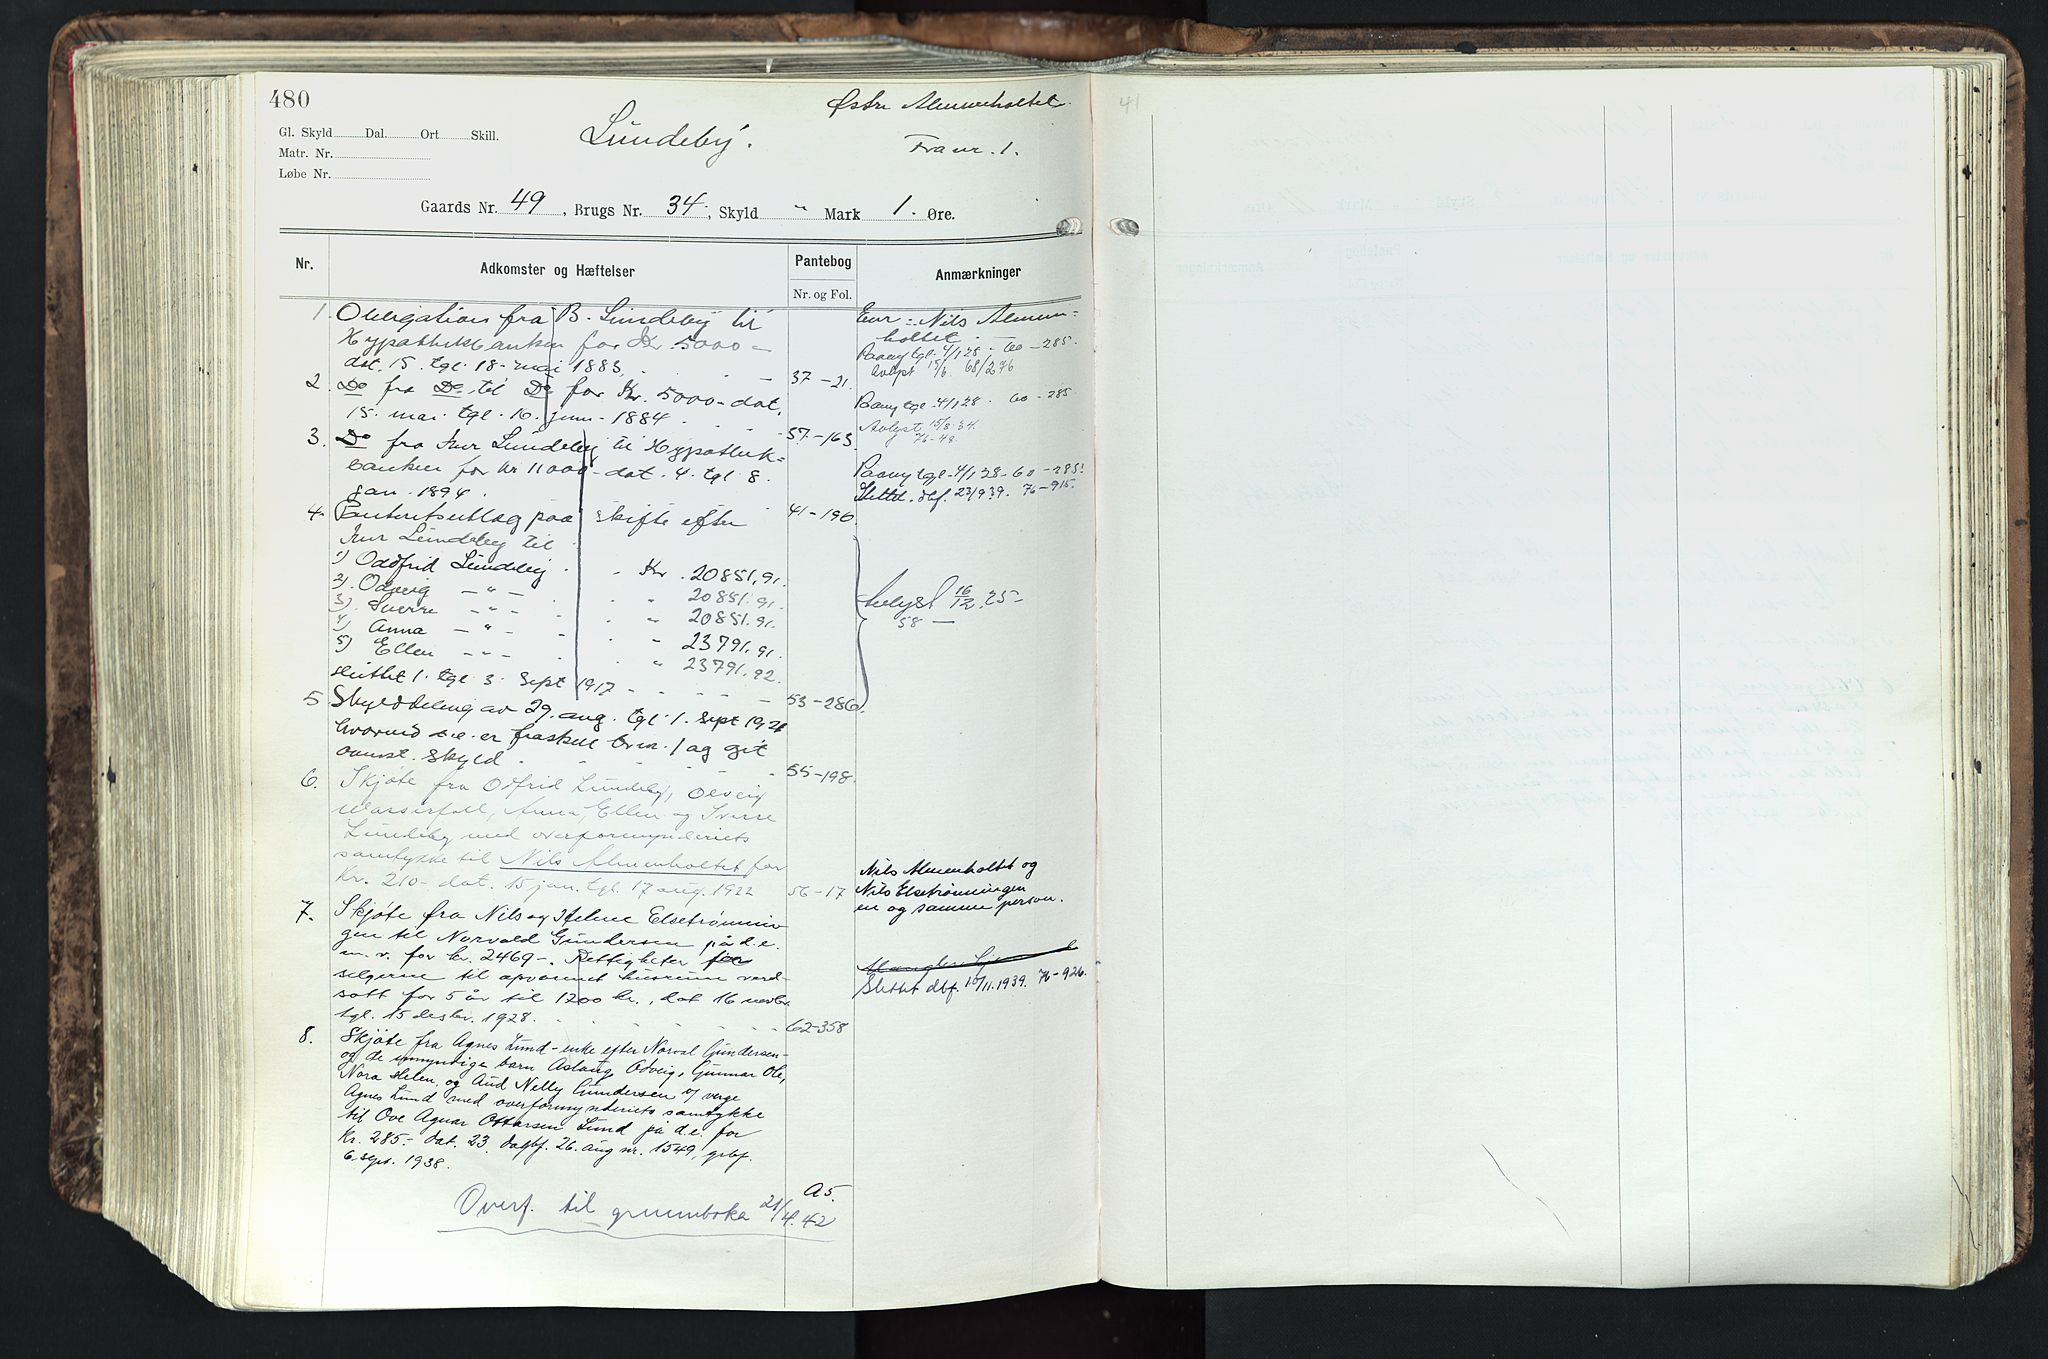 480
Østre Almenholtet.
Gl. Skyld Dal. Ort Skill.
Lundeby.
Fra nr. 1.
Matr. Nr.
Løbe Nr.
Gaards Nr. 49, Brugs Nr. 34, Skyld " Mark 1. Øre.
Nr.
Adkomster og Hæftelser
Pantebog
Nr. og Fol.
Anmærkninger
1. Obligation fra B. Lundeby til
Hypothekbanken for Kr 5000-
dat. 15. tgl. 18. mai 1883. 37-21.
2. Do fra Do til Do for Kr. 5000- dat.
15. mai. tgl. 16. juni. 1884. 57-163
3. Do fra Iver Lundeby til Hypothek=
banken for kr 11000- dat. 4. tgl. 8.
jan. 1894. 41-190
4. Panteretsutlæg paa skifte efter
Iver Lundeby til
1) Oddfrid Lundeby Kr. 20851,91.
2) Odveig -"- " 20851,91.
3) Sverre -"- " 20851,91.
4) Anna -"- " 23791,91
5) Ellen -"- " 23791,92.
sluttet 1. tgl. 3. Sept 1917 53-286.
5 Skylddeling av 29. aug. tgl. 1. Sept 1921
hvorved d.e. er fraskilt br.nr. 1 og git
ovenst. skyld 55-198.
6. Skjøte fra Odfrid Lundeby, Odveig
Wasserfall, Anna, Ellen og Sverre
Lundeby med overformynderiets
samtykke til Nils Almenholtet for
Kr. 210- dat. 15 jan. tgl. 17 aug. 1922 56-17
7. Skjøte fra Nils og Helene Elsetrønnin-
gen til Norvald Gundersen på d.e.
m. v. for kr. 2469-. Rettigheter for
selgerne til opvarmet husrum verd-
satt for 5 år til 1200 kr., dat 16 novbr.
tgl. 15 desbr. 1928. 62-358
8. Skjøte fra Agnes Lund - enke efter Norval Gundersen -
og de umyndige barn Aslaug Odveig, Gunnar Ole,
Nora Helen, og Aud Nelly Gundersen v/ verge
Agnes Lund med overformynderiets samtykke
til Ove Agnar Ottarsen Lund på d.e. for
Kr. 285.- dat. 23. dagbf. 26. aug nr. 1549, grbf.
6. sept. 1938.
A5.
Overf. til grunnboka 21/4.42
Eier: Nils Almen=
holtet
Paany tgl. 4/1 28 - 60-285.
Avlyst 15/6. 68/276
Paany tgl. 4/1 28. 60-285
Avlyst 15/8.34.
76-48.
Paany tgl. 4/1 28- 60-285!
Slettet. dbf. 23/9 39. 76-915.
Avlyst 16/12.25-
58 -
Nils Almenholtet og
Nils Elsetrønningen
en og samme person.
Slettet dbf. 10/11.1939. 76-926.
41